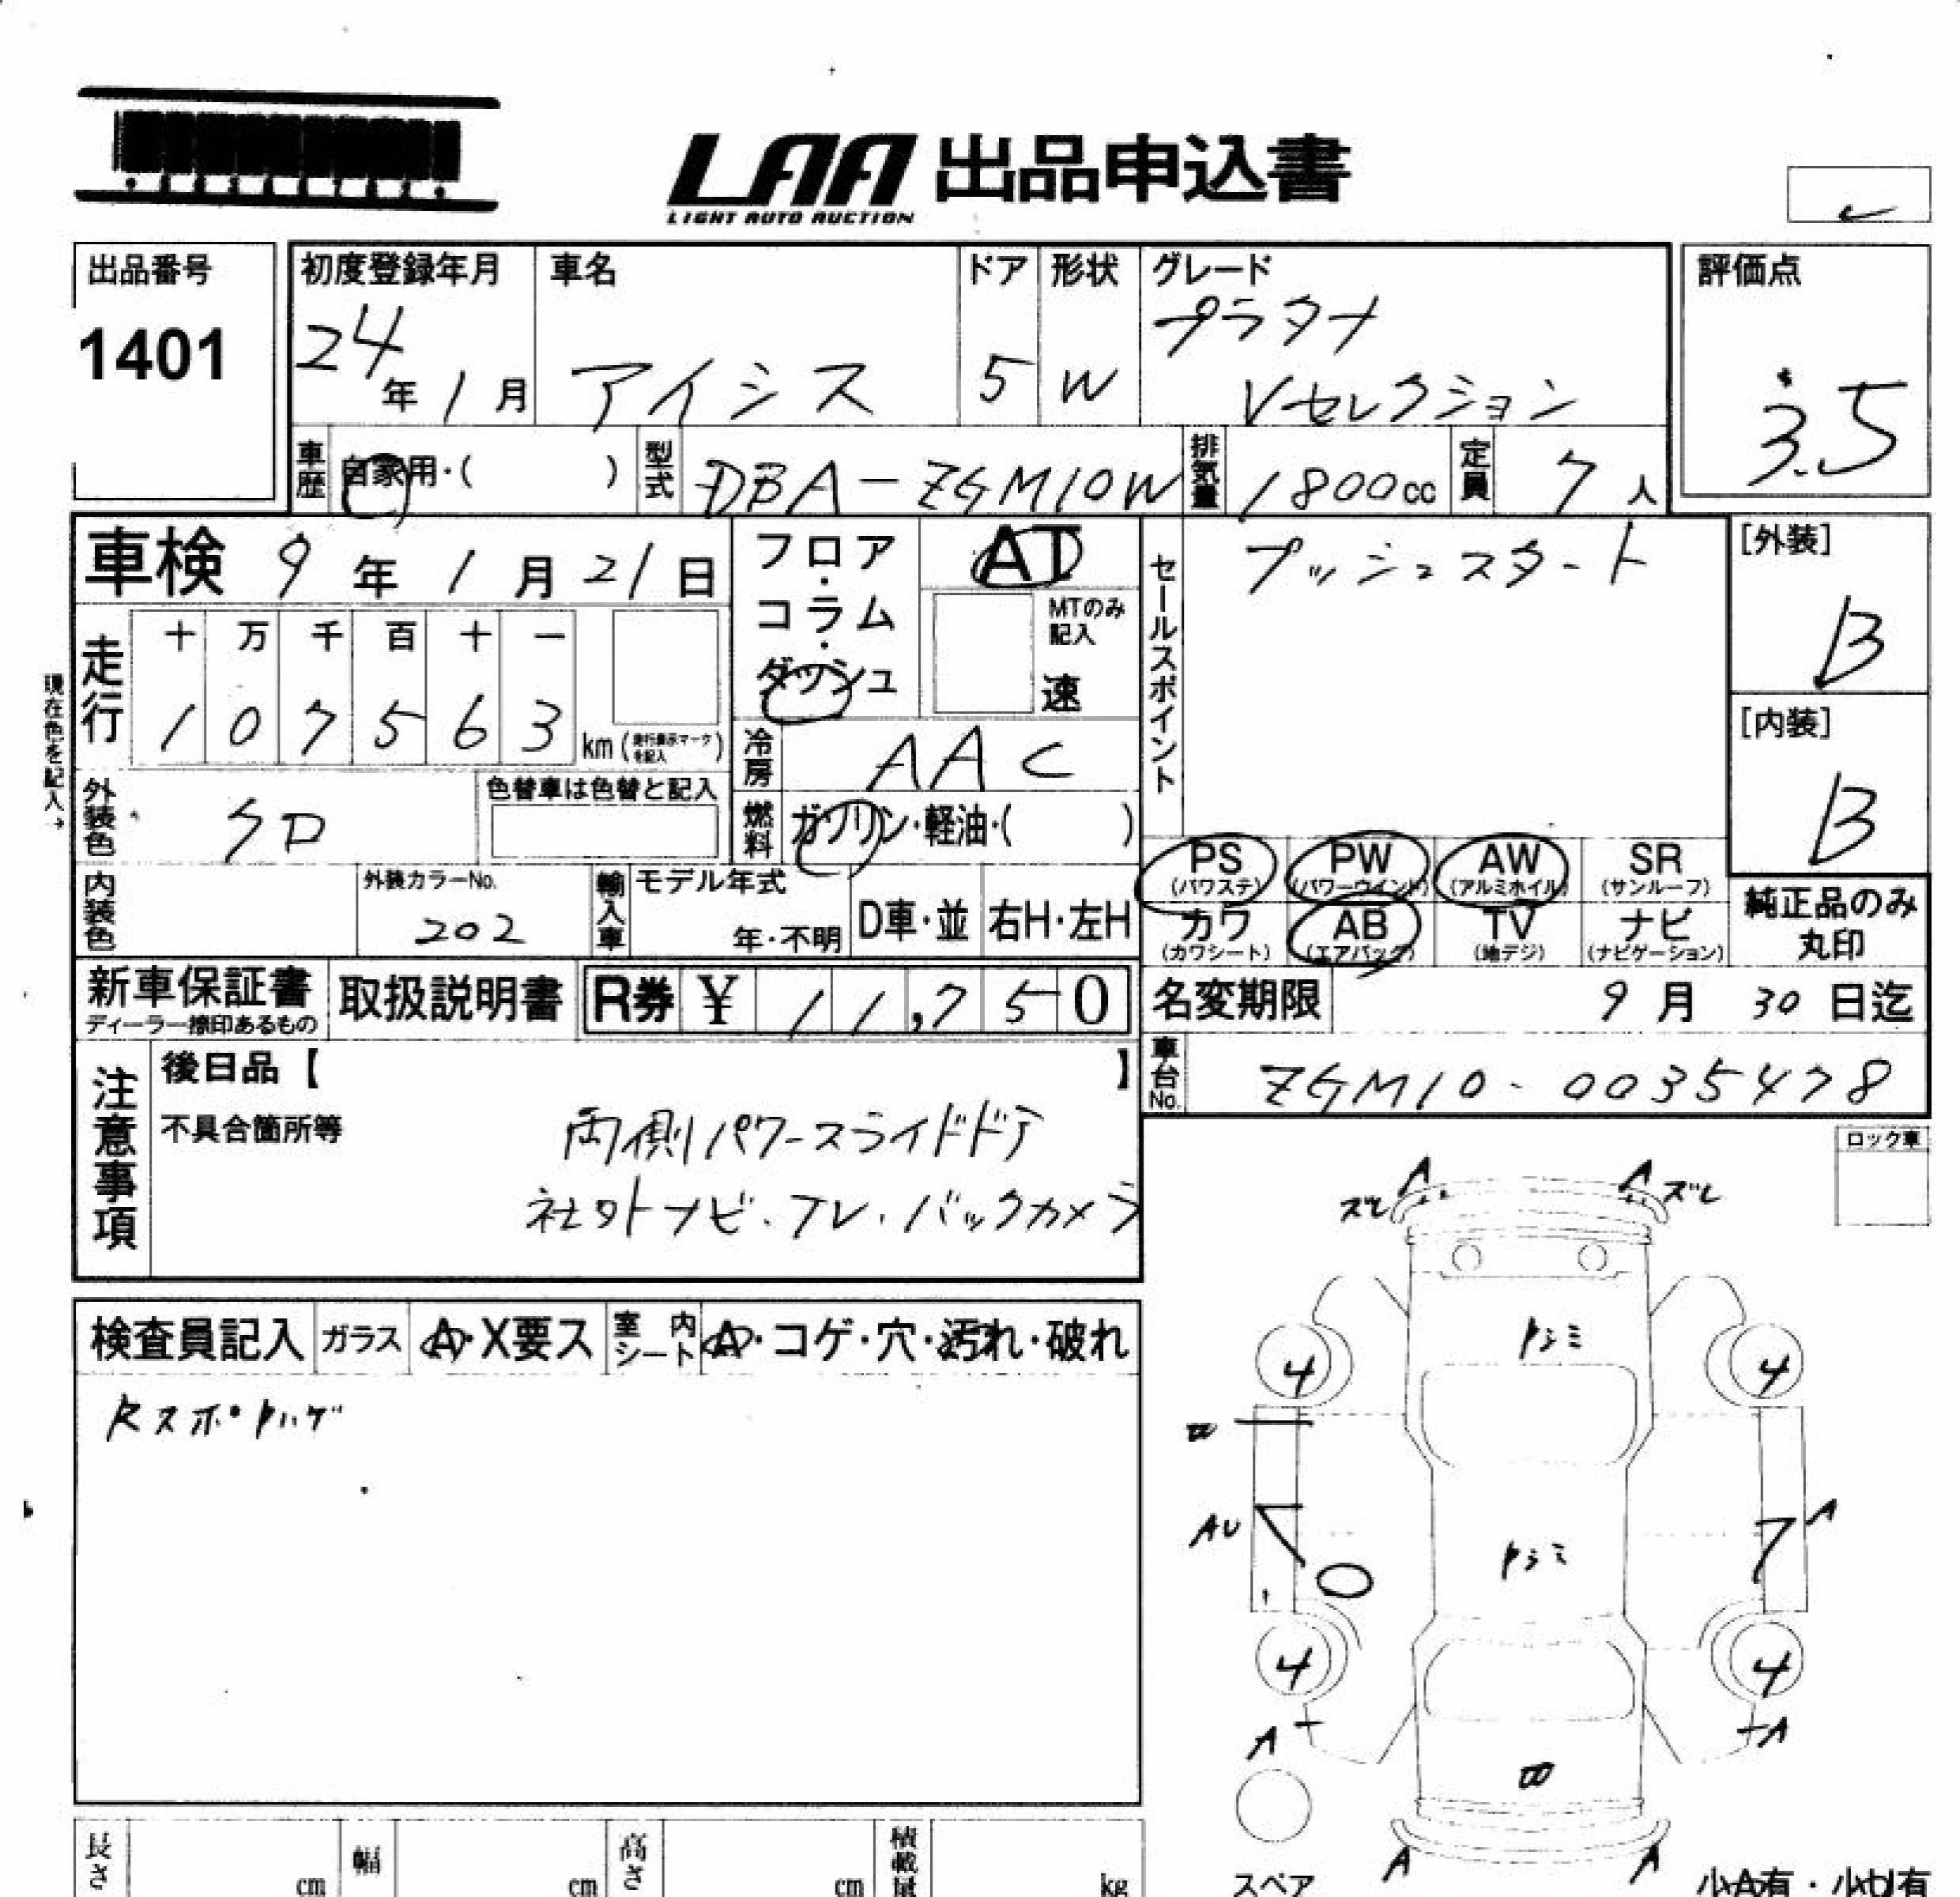 LAA 出品申込書
LIGHT AUTO AUCTION
出品番号
1401
初度登録年月
24年 1月
車名
アイシス
ドア
5
形状
W
グレード
プラタナ
Vセレクション
評価点
3.5
車歴 自家用・( )
型式 DBA-ZGM10W
排気量 1800cc
定員 7人
車検 9年 1月 21日
現在色を記入→
走行
十 万 千 百 十 一
1 0 7 5 6 3 km (走行表示マークを記入)
フロア・コラム・ダッシュ
AT
MTのみ記入
速
冷房 AAC
燃料 ガソリン・軽油・( )
セールスポイント
プッシュスタート
[外装]
B
[内装]
B
外装色 クロ
色替車は色替と記入
内装色
外装カラーNo.
202
輸入車
モデル年式
年・不明
D車・並
右H・左H
PS (パワステ)
PW (パワーウインド)
AW (アルミホイル)
SR (サンルーフ)
カワ (カワシート)
AB (エアバッグ)
TV (地デジ)
ナビ (ナビゲーション)
純正品のみ
丸印
新車保証書
ディーラー捺印あるもの
取扱説明書
R券 ¥ 11,750
名変期限 9月 30日迄
車台No. ZGM10-0035478
注意事項
後日品【 】
不具合箇所等
両側パワースライドドア
社外ナビ・TV・バックカメラ
ロック車
検査員記入
ガラス A・X要ス
室内シート A・コゲ・穴・汚れ・破れ
A A
ズレ ズレ
トシミ
4 4
AU A
トシミ
4 4
A A
A A
スペア
小A有・小U有
長さ cm
幅 cm
高さ cm
積載量 kg